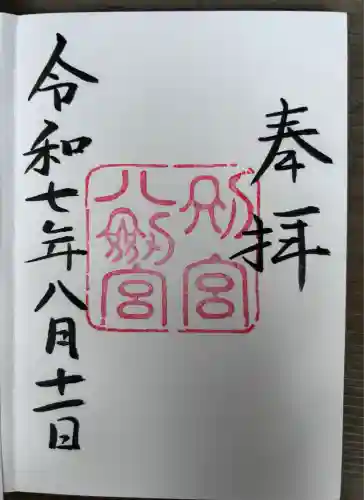 奉拝
別宮
八劔宮
令和七年八月十一日